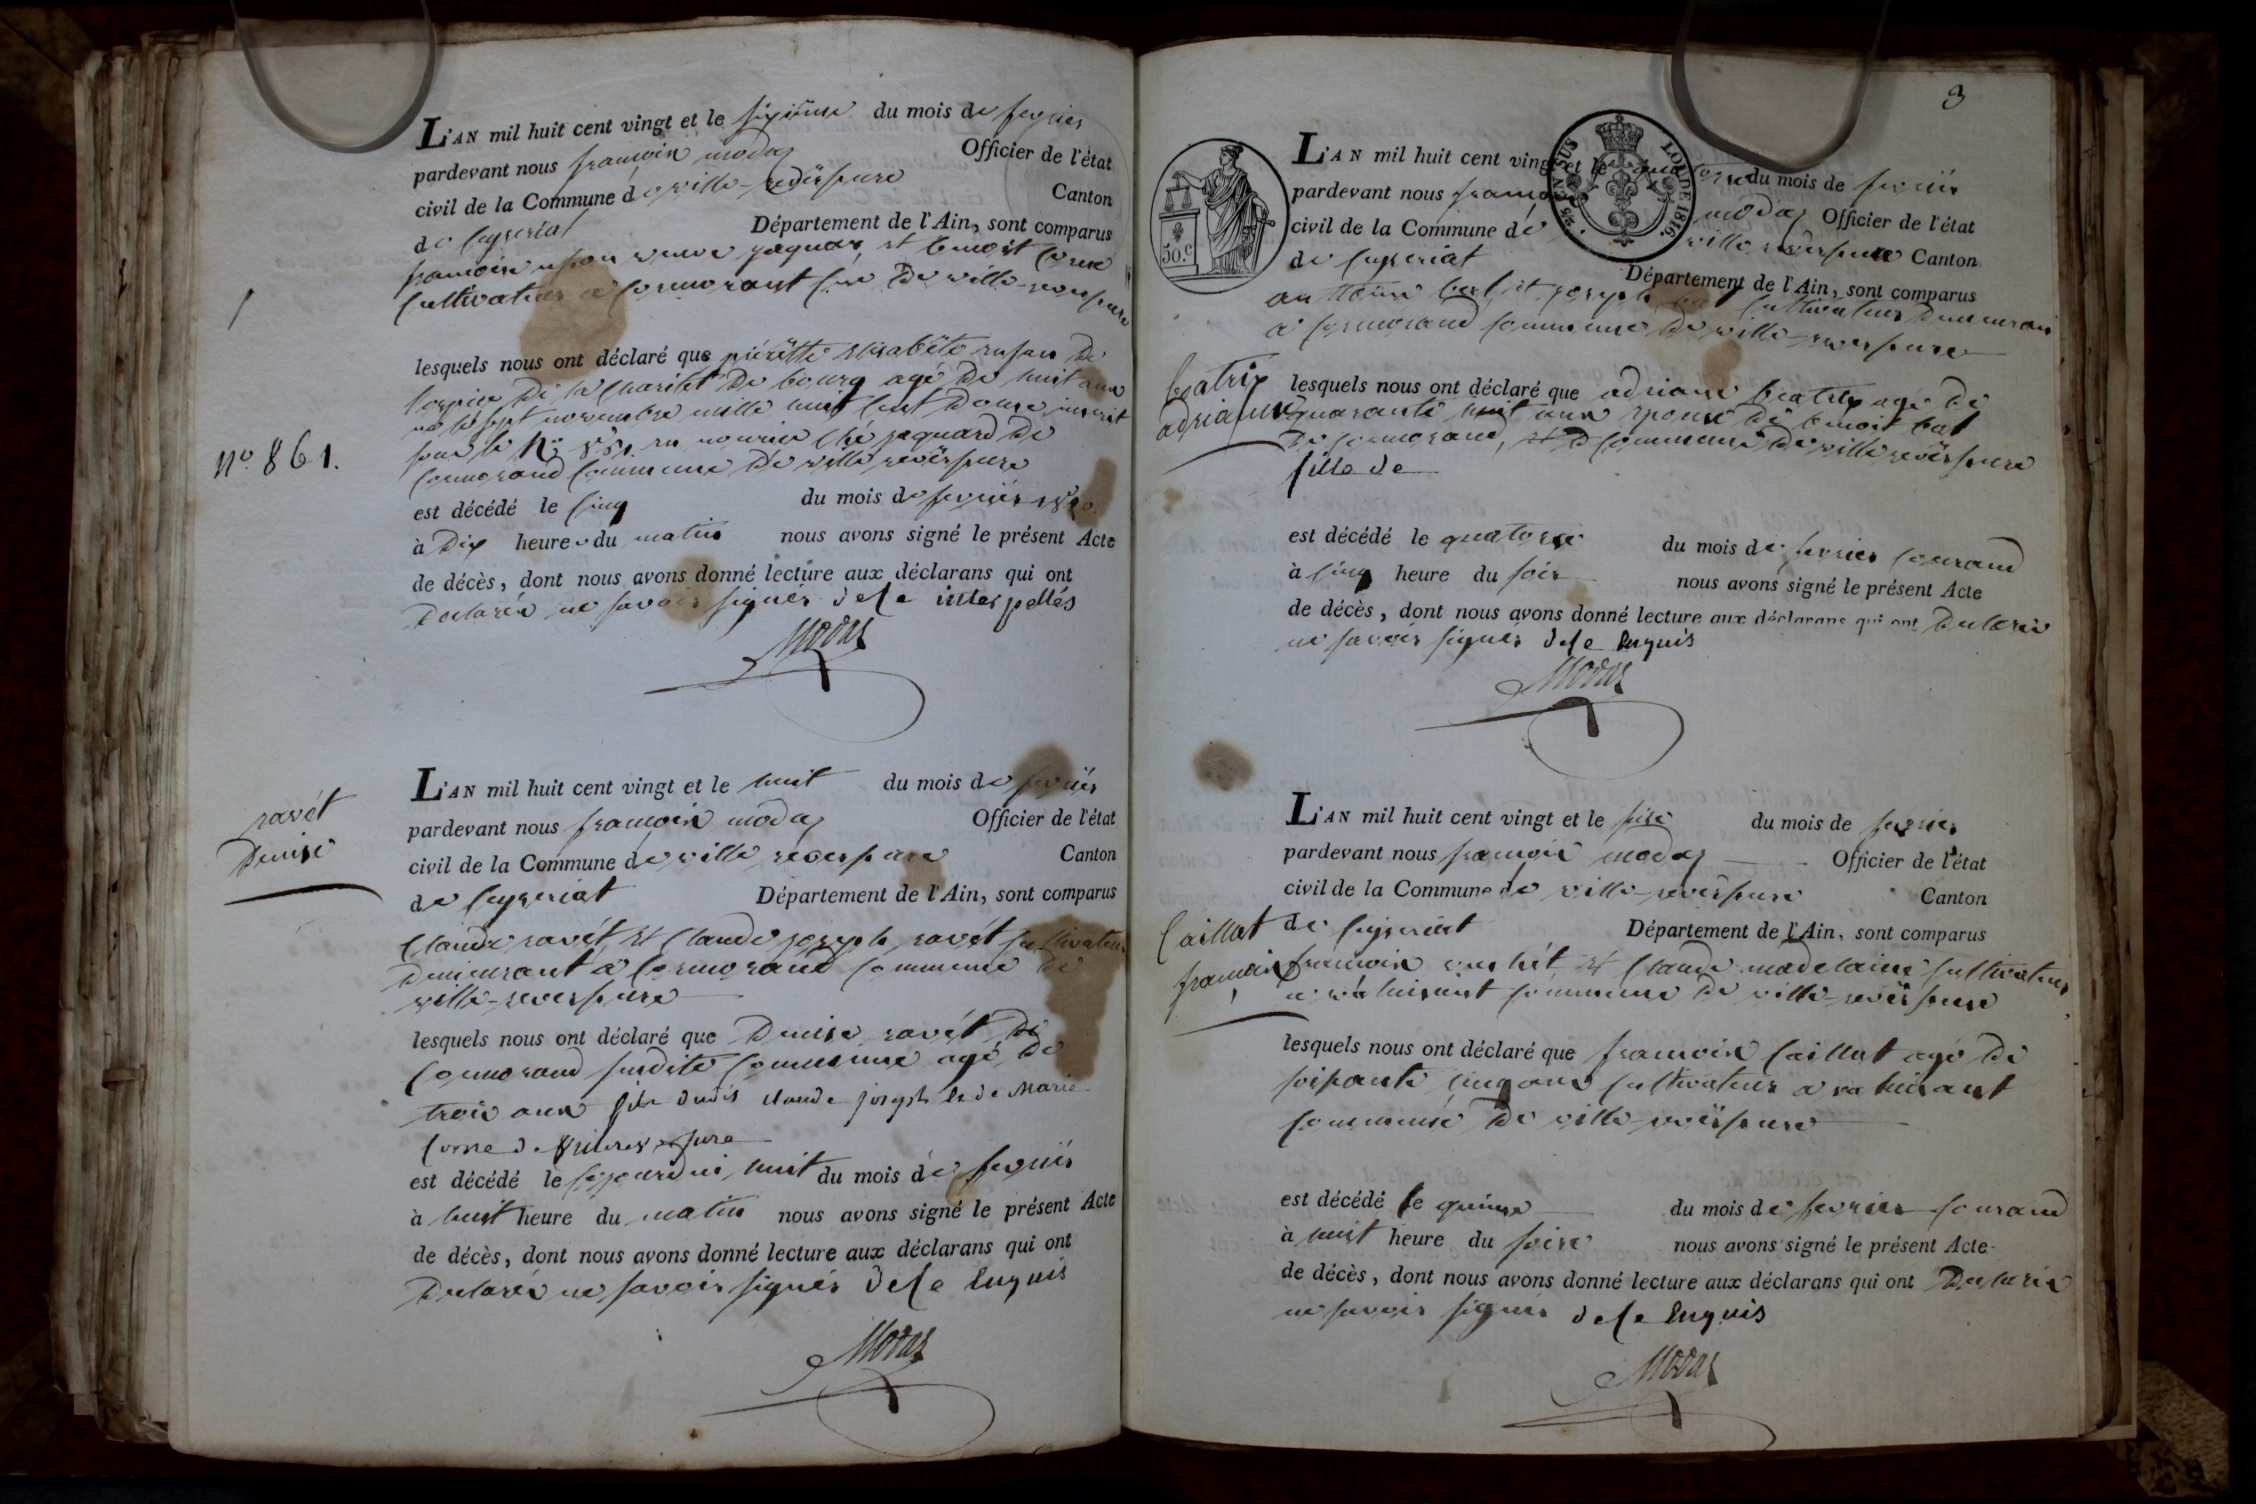 L'AN mil huit cent vingt et le sixième du mois de fevrier
pardevant nous françois modas Officier de l'état
civil de la Commune de ville-reversure Canton
de Ceyseriat Département de l'Ain, sont comparus
françoise veuve jaquar, et benoit Corne
Cultivateur a Cormorant Cne De ville-reversure
lesquels nous ont déclaré que pierètte elisabéte enfan De
l'ospice De la Charité De bourg agé De huit ans
né le sept novembre mille huit Cent Douze, inscrit
sous le No 861. en nourice ché jaquard De
Cormorand Commune De ville reversure
est décédé le Cinq du mois de fevrier 1820.
à Dix heure du matin nous avons signé le présent Acte
de décès, dont nous avons donné lecture aux déclarans qui ont
Declarés ne savoir signér de Ce interpellés
Modas
No. 861.
L'AN mil huit cent vingt et le huit du mois de fevrier
pardevant nous françois modas Officier de l'état
civil de la Commune de ville reversure Canton
de Ceyseriat Département de l'Ain, sont comparus
ravét
Denise
Claude ravét, et Claude joseph ravét Cultivateur
Demeurant a Cormorand Commune De
ville-reversure
lesquels nous ont déclaré que Denise ravét De
Cormorand susdite Commune agé De
trois ans fille dudit Claude joseph et de Marie
Corne de
est décédé le Cejourdui huit du mois de fevrier
à huit heure du matin nous avons signé le présent Acte
de décès, dont nous avons donné lecture aux déclarans qui ont
Declarés ne savoir signér de Ce Enquis
Modas
3
EN SUS
LOI DE 1816.
50.c
L'AN mil huit cent vingt et le quatorze du mois de fevrier
pardevant nous françois modas Officier de l'état
civil de la Commune de ville reversure Canton
de Ceyseriat Département de l'Ain, sont comparus
anttoine et joseph Cultivateur Demeurant
a Cormorand Commune De ville-reversure
beatrix
adrianne
lesquels nous ont déclaré que adriane beatrix agé De
quarante huit ans epouse De benoit
De Cormorand, Commune De ville reversure
fille de
est décédé le quatorze du mois de fevrier Courand
à Cinq heure du soir nous avons signé le présent Acte
de décès, dont nous avons donné lecture aux déclarans qui ont Declarés
ne savoir signér de Ce Enquis
Modas
L'AN mil huit cent vingt et le seize du mois de fevrier
pardevant nous françois modas Officier de l'état
civil de la Commune de ville-reversure Canton
de Ceyseriat Département de l'Ain, sont comparus
Caillat
françois
françois et Claude madelaine Cultivateur
a Commune De ville-reversure
lesquels nous ont déclaré que françois Caillat agé De
soixante Cinq ans Cultivateur a
Commune De ville reversure
est décédé le quinze du mois de fevrier Courand
à huit heure du soire nous avons signé le présent Acte
de décès, dont nous avons donné lecture aux déclarans qui ont Declarés
ne savoir signér de Ce Enquis
Modas